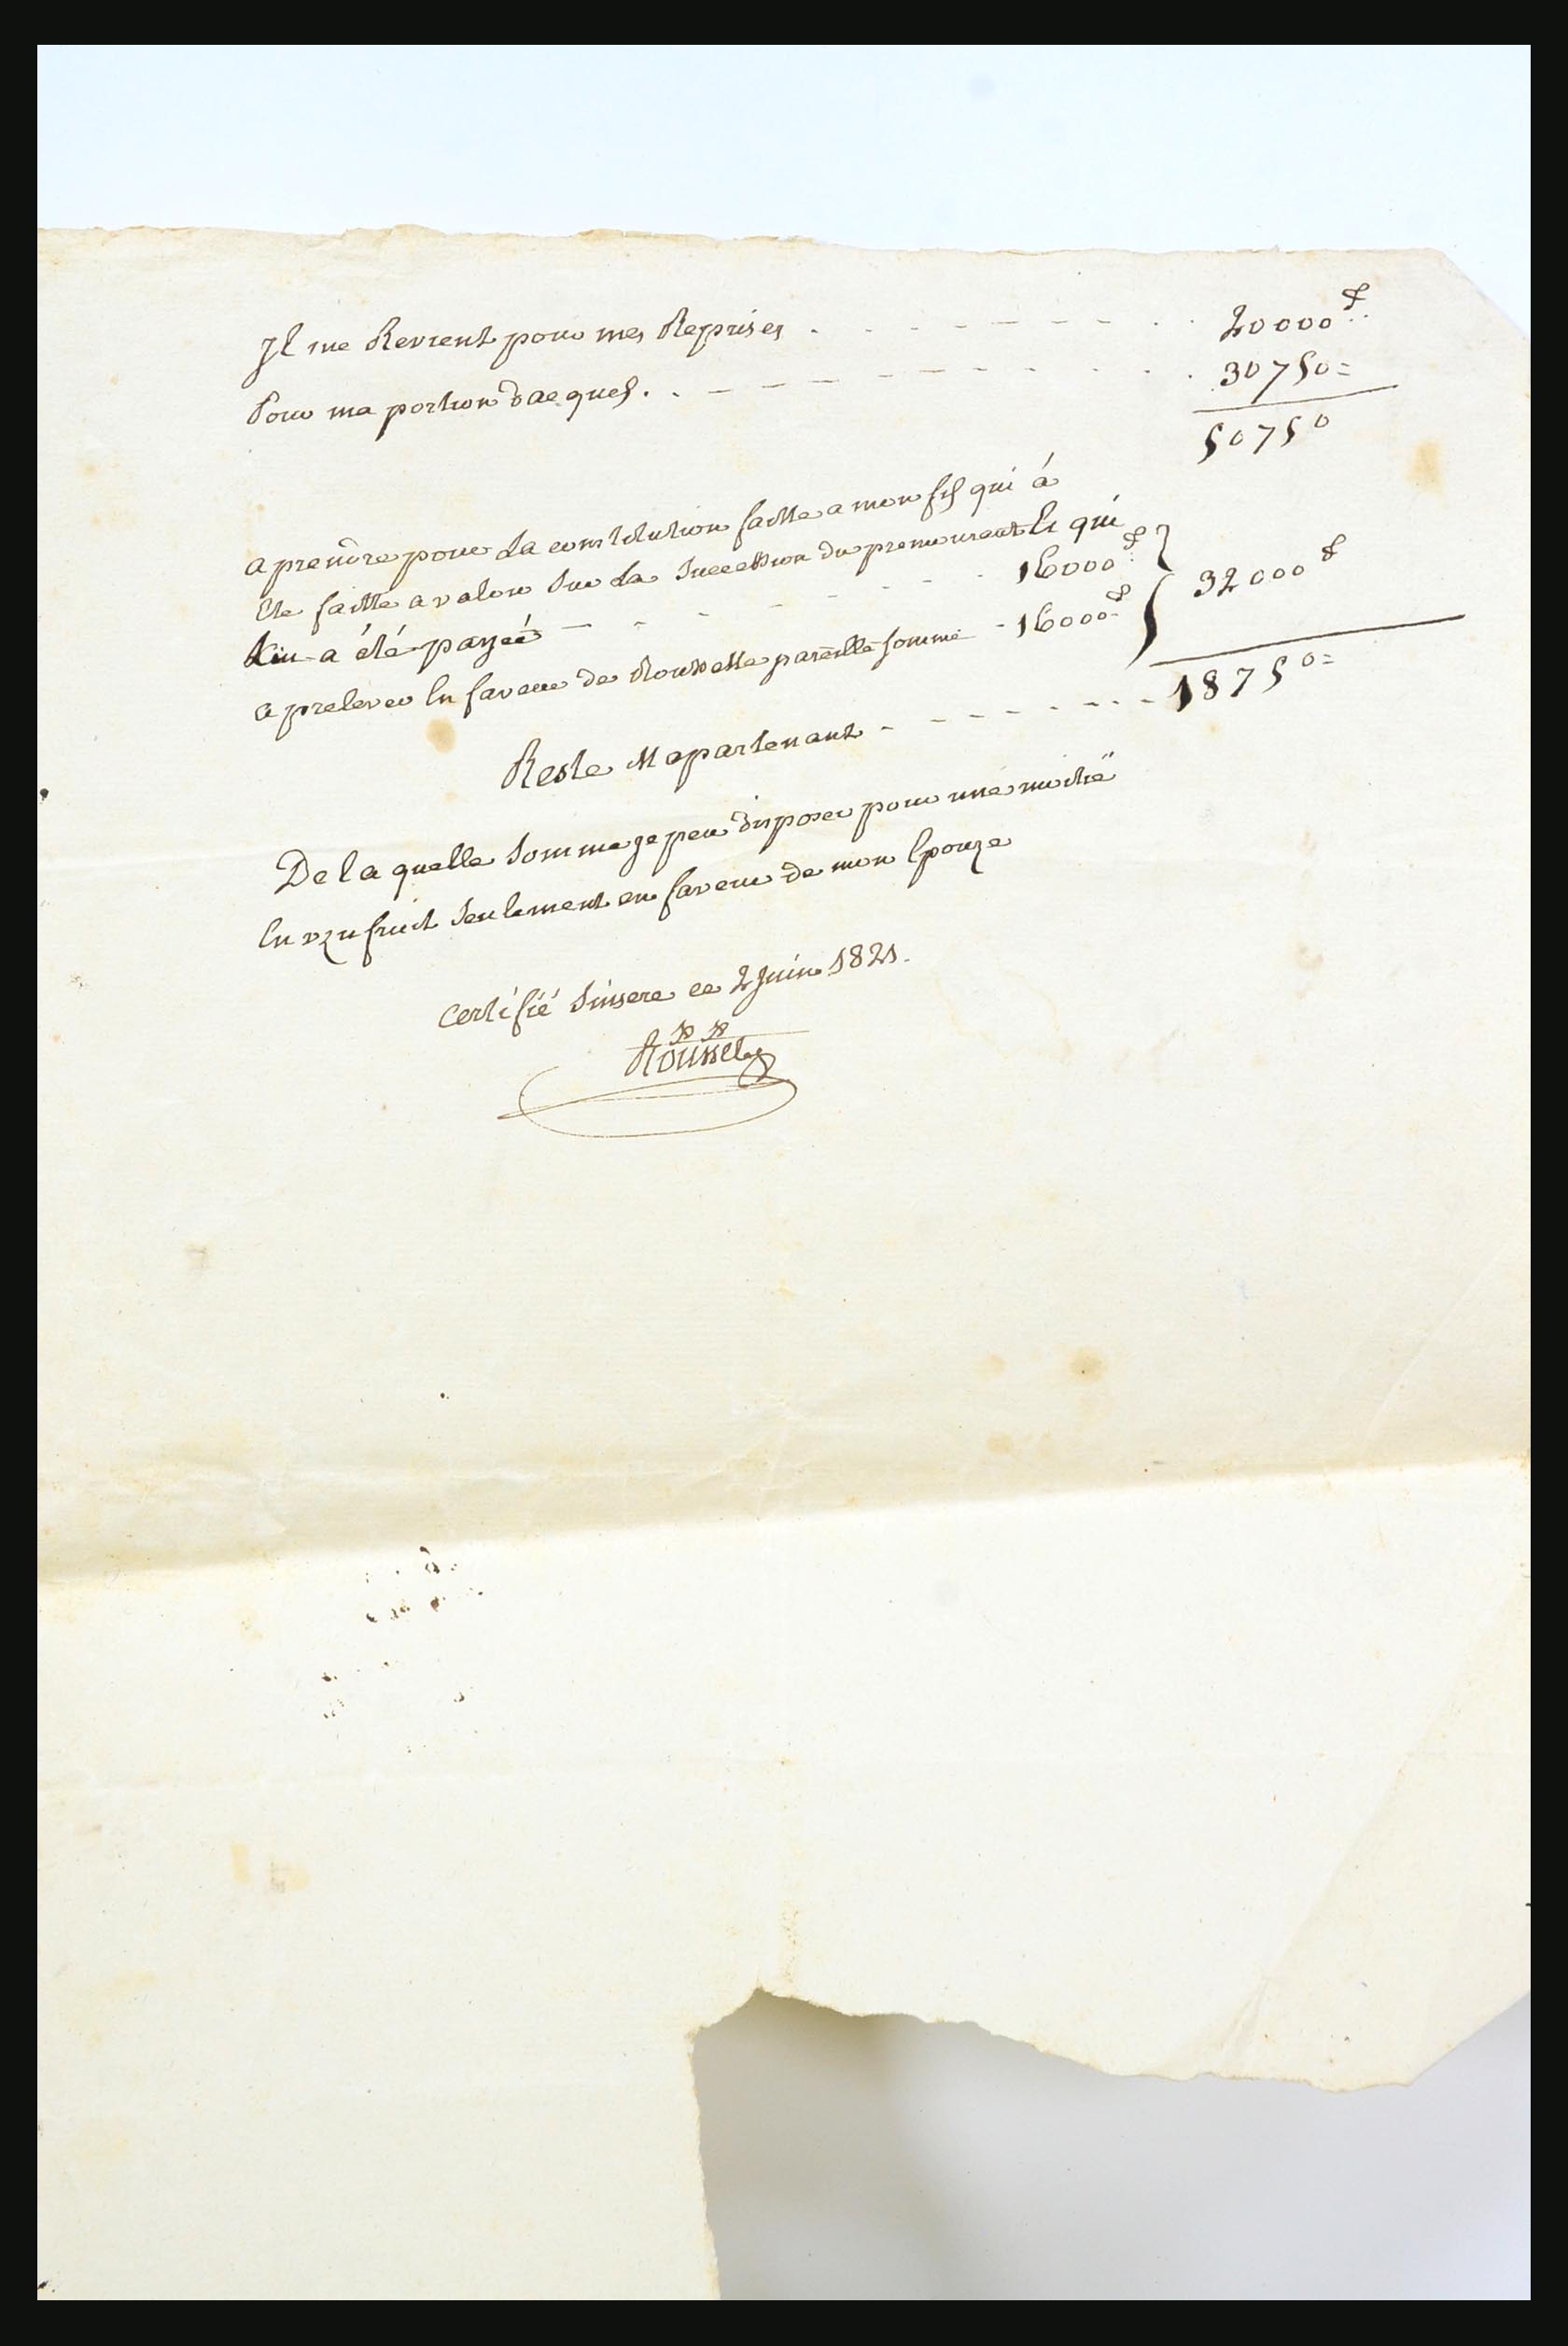 Il me Revient pour mes Reprises . - - - - - - . . 20000 ₶
Pour ma portion dacquet . . - - - - - - - . . 30750 =
50750
a prendre pour La constitution faitte a mon fils qui á
Ete faitte a valoir Sur La Succession du premourant Et qui
Lui a été payéé - - - - - - - 16000 ₶
a prelever En faveur de Rousselle pareille somme - 16000 ₶ } 32000 ₶
Reste M apartenant - - - - - - - - 18750 =
De la quelle Somme je peu disposer pour une moitié
En vzufruit Seulement en faveur de mon Epouze
Certifié Sinsere ce 2 Juin 1821.
Roussel